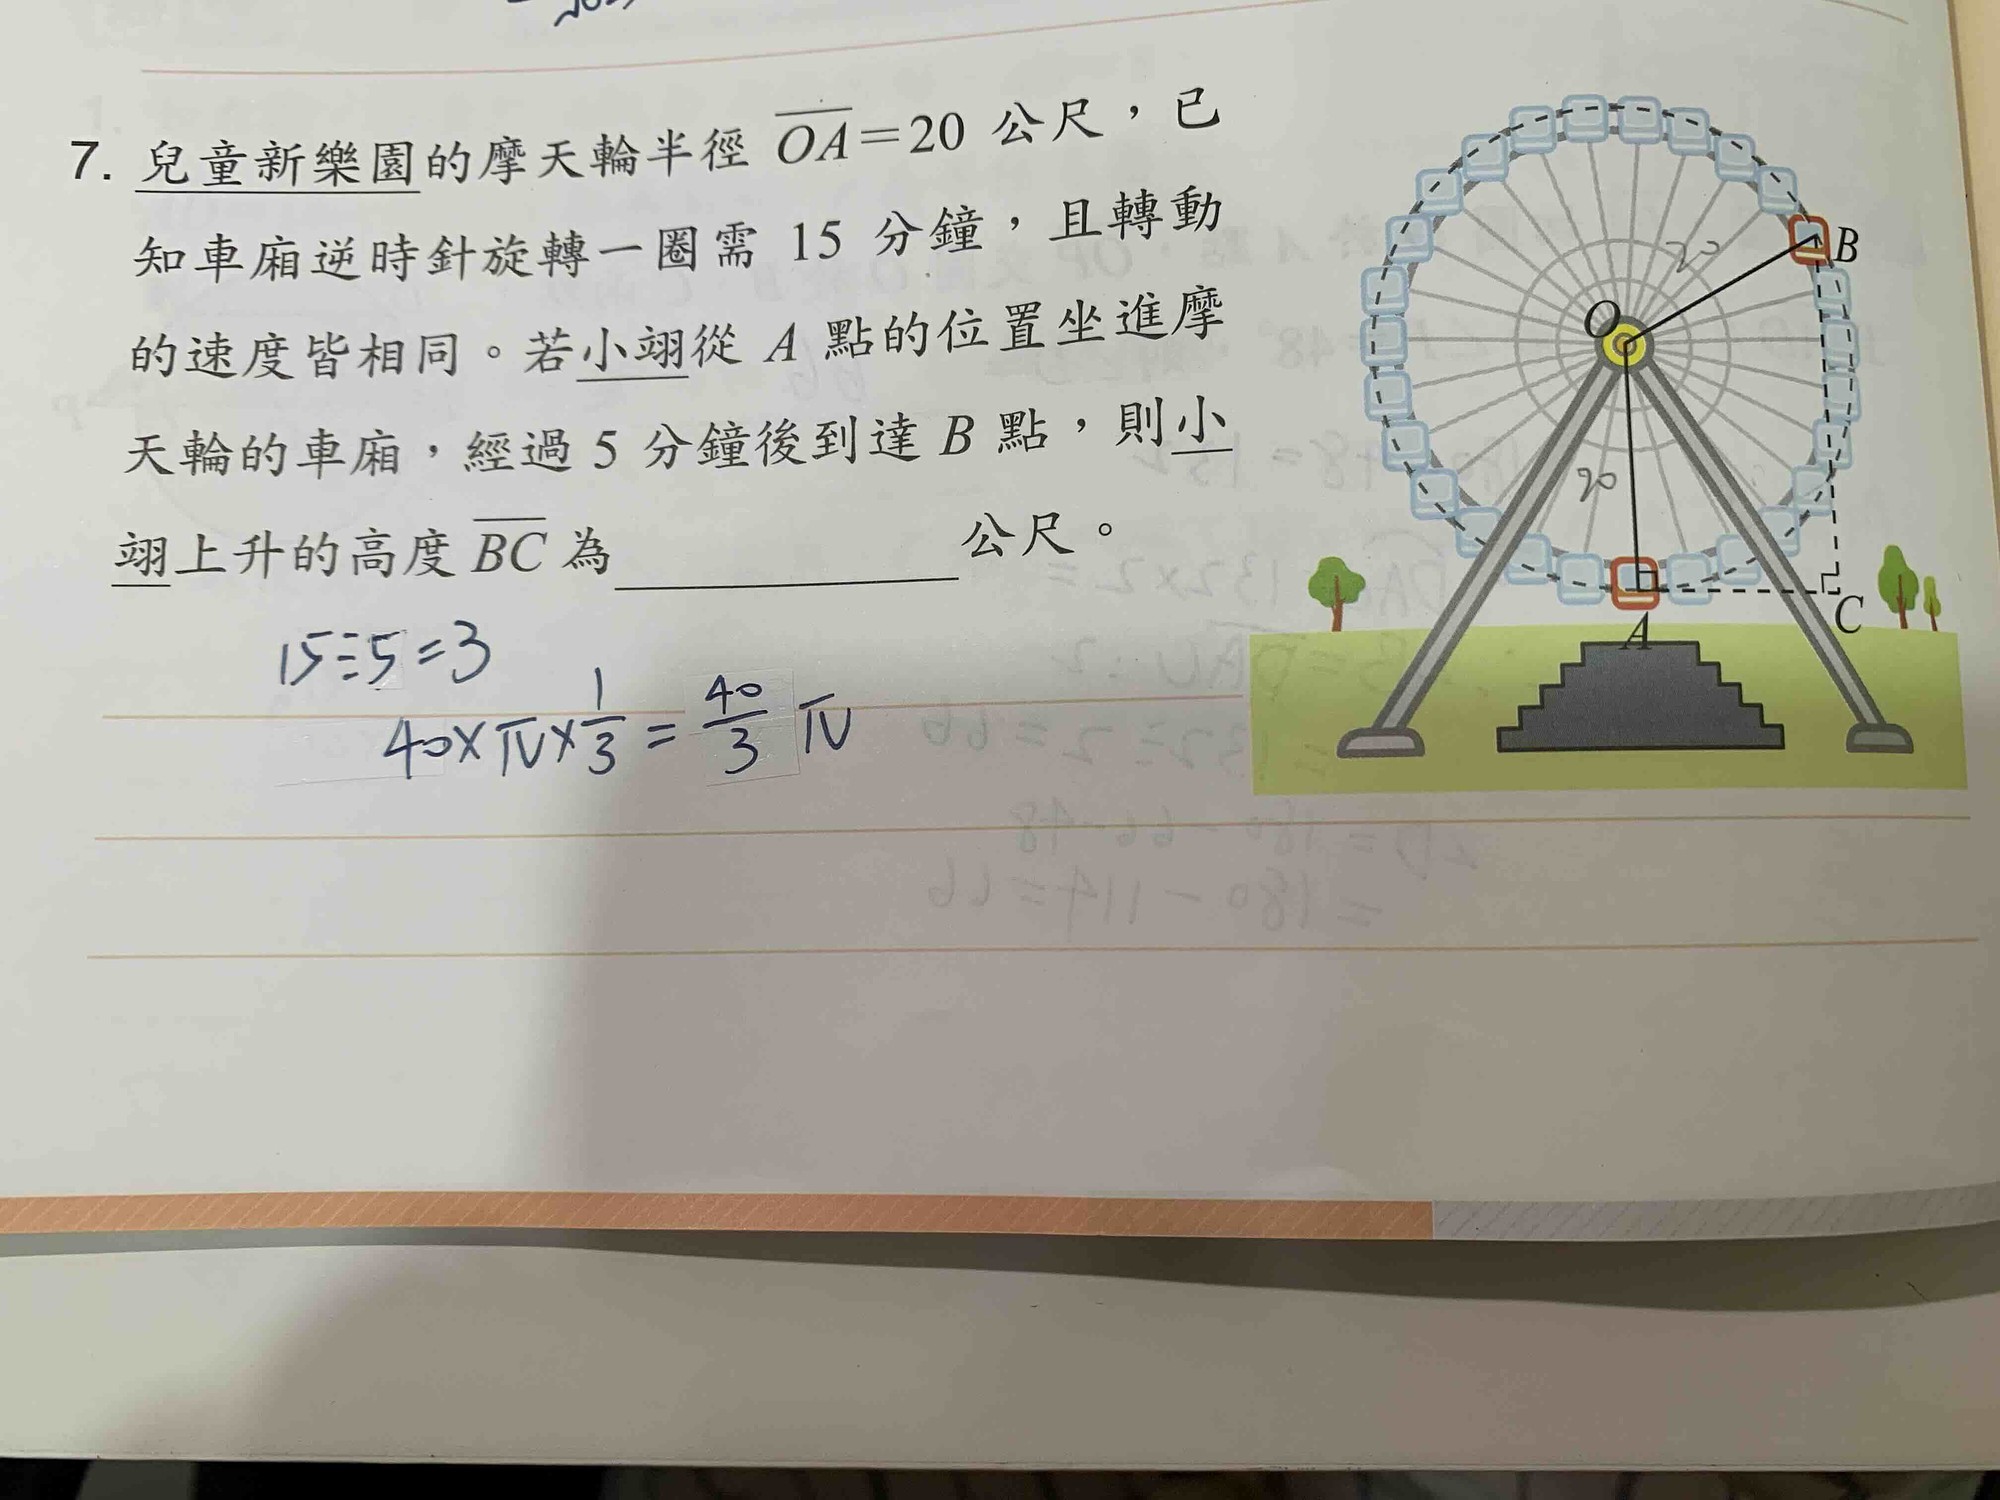 7. 兒童新樂園的摩天輪半徑 OA=20 公尺，已
知車廂逆時針旋轉一圈需 15 分鐘，且轉動
的速度皆相同。若小翊從 A 點的位置坐進摩
天輪的車廂，經過 5 分鐘後到達 B 點，則小
翊上升的高度 BC 為＿＿＿＿＿＿公尺。
15÷5=3
40×π×1/3=40/3 π
20
B
O
20
A
C